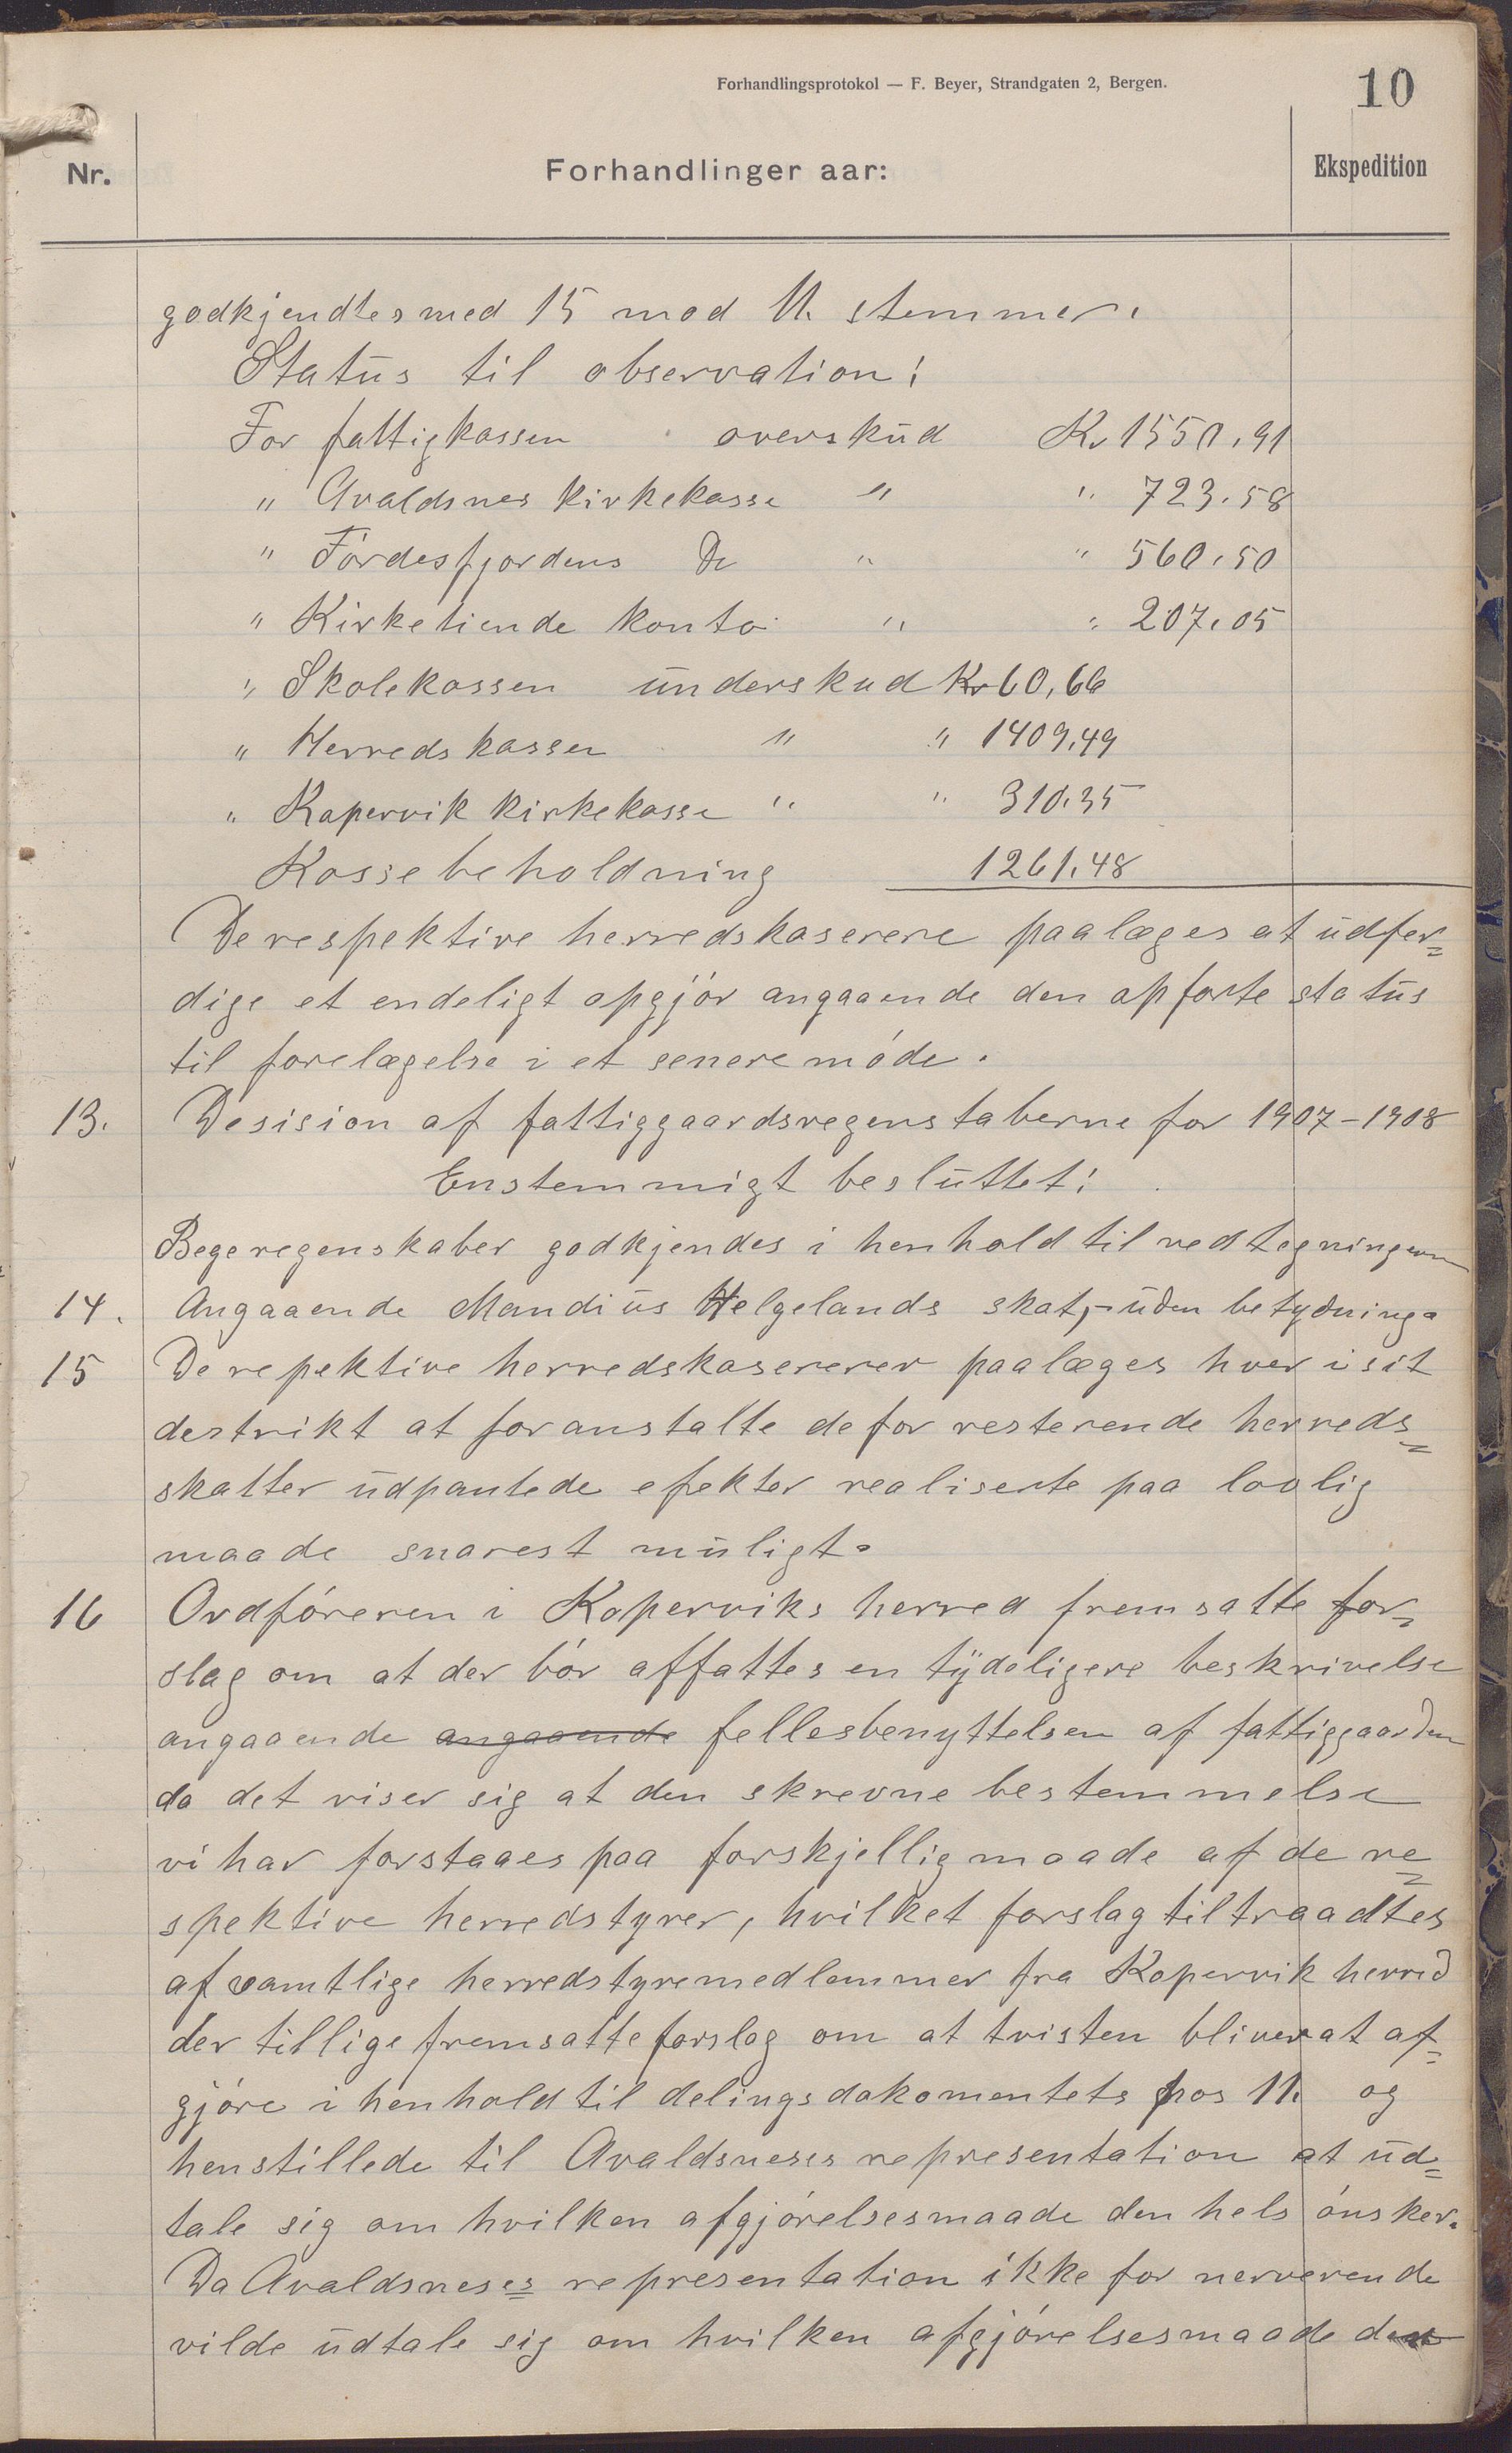 Forhandlingsprotokol — F. Beyer, Strandgaten 2, Bergen.
10
Nr.
Forhandlinger aar:
Ekspedition
godkjendtes med 15 mod 11. stemmer.
Status til observation:
For fattigkassen overskud Kr 1550,91
" Avaldsnes kirkekasse " " 723.58
" Fördesfjordens Do " " 560,50
" Kirketiende konto " " 207,05
" Skolekassen underskud Kr 60,66
" Herredskassen " " 1409,49
" Kopervik kirkekasse " " 310.35
Kassebeholdning 1261,48
De respektive herredskaserere paalæges at udfer=
dige et endeligt opgjör angaaende den opförte status
til forelægelse i et senere möde.
13. Desision af fattiggaardsregenstaberne for 1907-1908
Enstemmigt besluttet:
Begge regenskaber godkjendes i henhold til vedtegningerne
14. Angaaende Mandius Helgelands skat, - uden betydning.
15 De repektive herredskasererer paalæges hver i sit
destrikt at foranstalte de for resterende herreds=
skatter udpantede efekter realiserte paa lovlig
maade snarest muligt.
16 Ordföreren i Koperviks herred fremsatte for=
slag om at der bör affattes en tydeligere beskrivelse
angaaende angaaende fellesbenyttelsen af fattiggaarden
da det viser sig at den skrevne bestemmelse
vi har forstaaes paa forskjellig maade af de re=
spektive herredstyrer, hvilket forslag tiltraadtes
af samtlige herredstyremedlemmer fra Kopervik herred
der tillige fremsatte forslag om at tvisten bliver at af=
gjöre i henhold til delingsdokomentets pos 11. og
henstillede til Avaldsneses representation at ud=
tale sig om hvilken afgjörelsesmaade den hels önsker.
Da Avaldsneses representation ikke for nerverende
vilde udtale sig om hvilken afgjörelsesmaade den